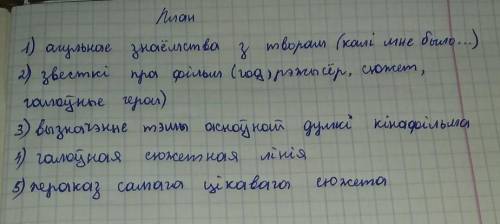 План
1) агульнае знаёмства з творам (калі мне было...)
2) звесткі пра фільм (год, рэжысёр, сюжет,
галоўные героі)
3) вызначэнне тэмы асноўнай думкі кінафільма
4) галоўная сюжетная лінія
5) пераказ самага цікавага сюжета